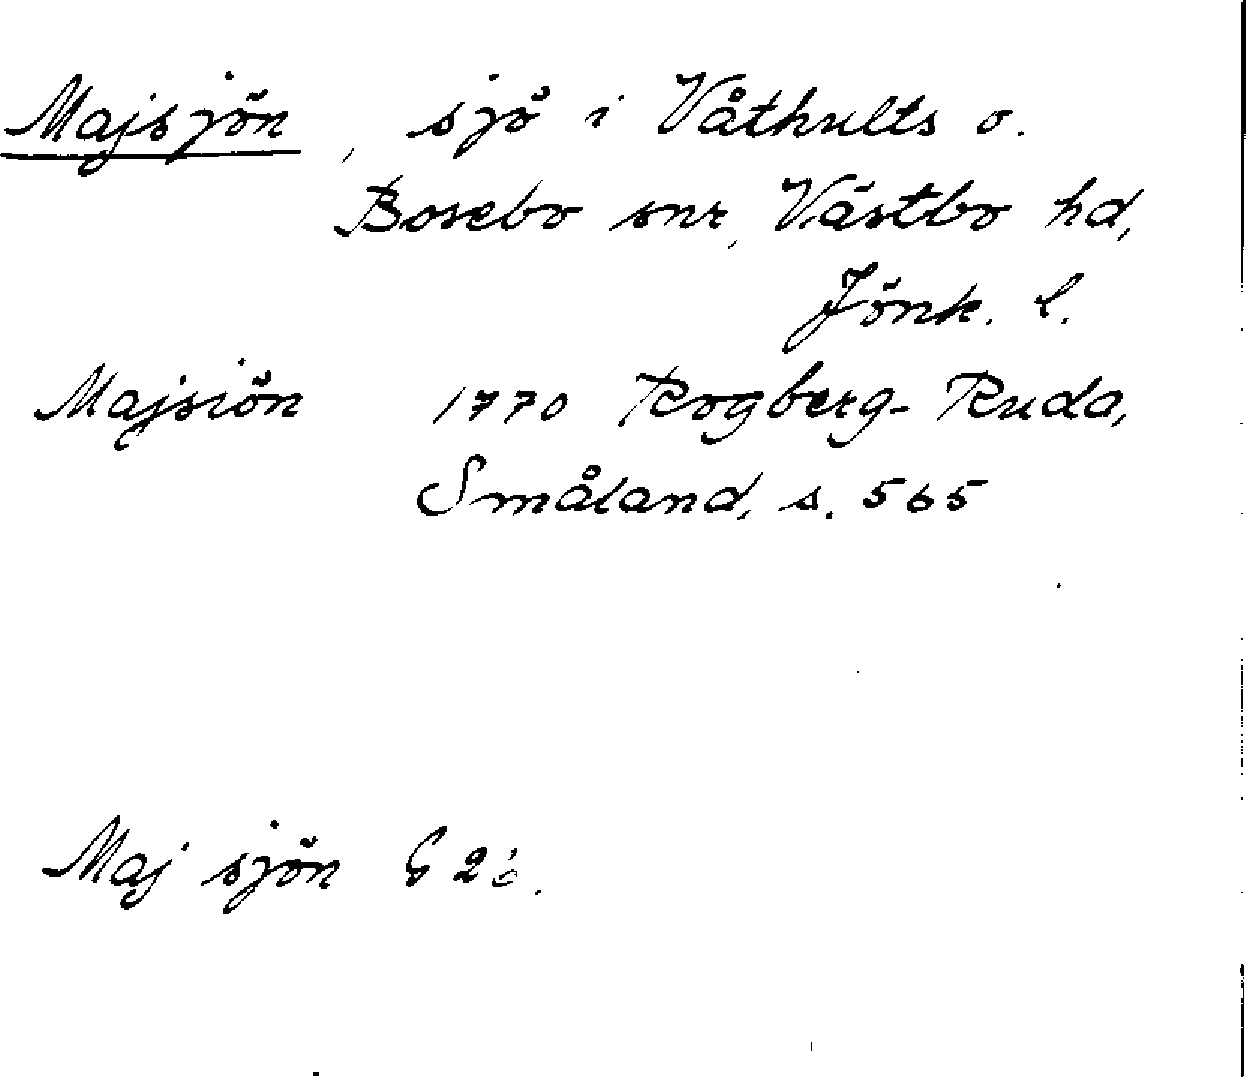 Majsjön, sjö i Våthults o.
Bosebo snr, Västbo hd,
Jönk. l.
Majsiön 1770 Rogberg-Ruda,
Småland, s. 565
Maj sjön G 26.